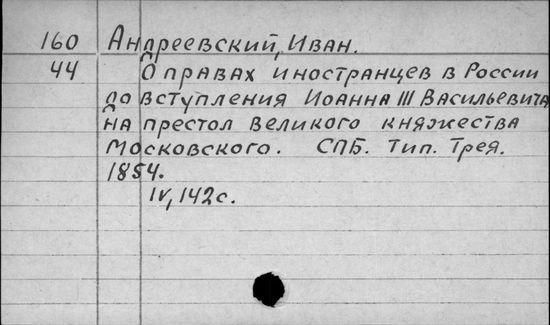 160 Андреевский, Иван.
44 О правах иностранцев в России
до вступления Иоанна III Васильевича
на престол великого княжества
Московского. СПБ. Тип. Трея.
1854.
IV, 142 с.